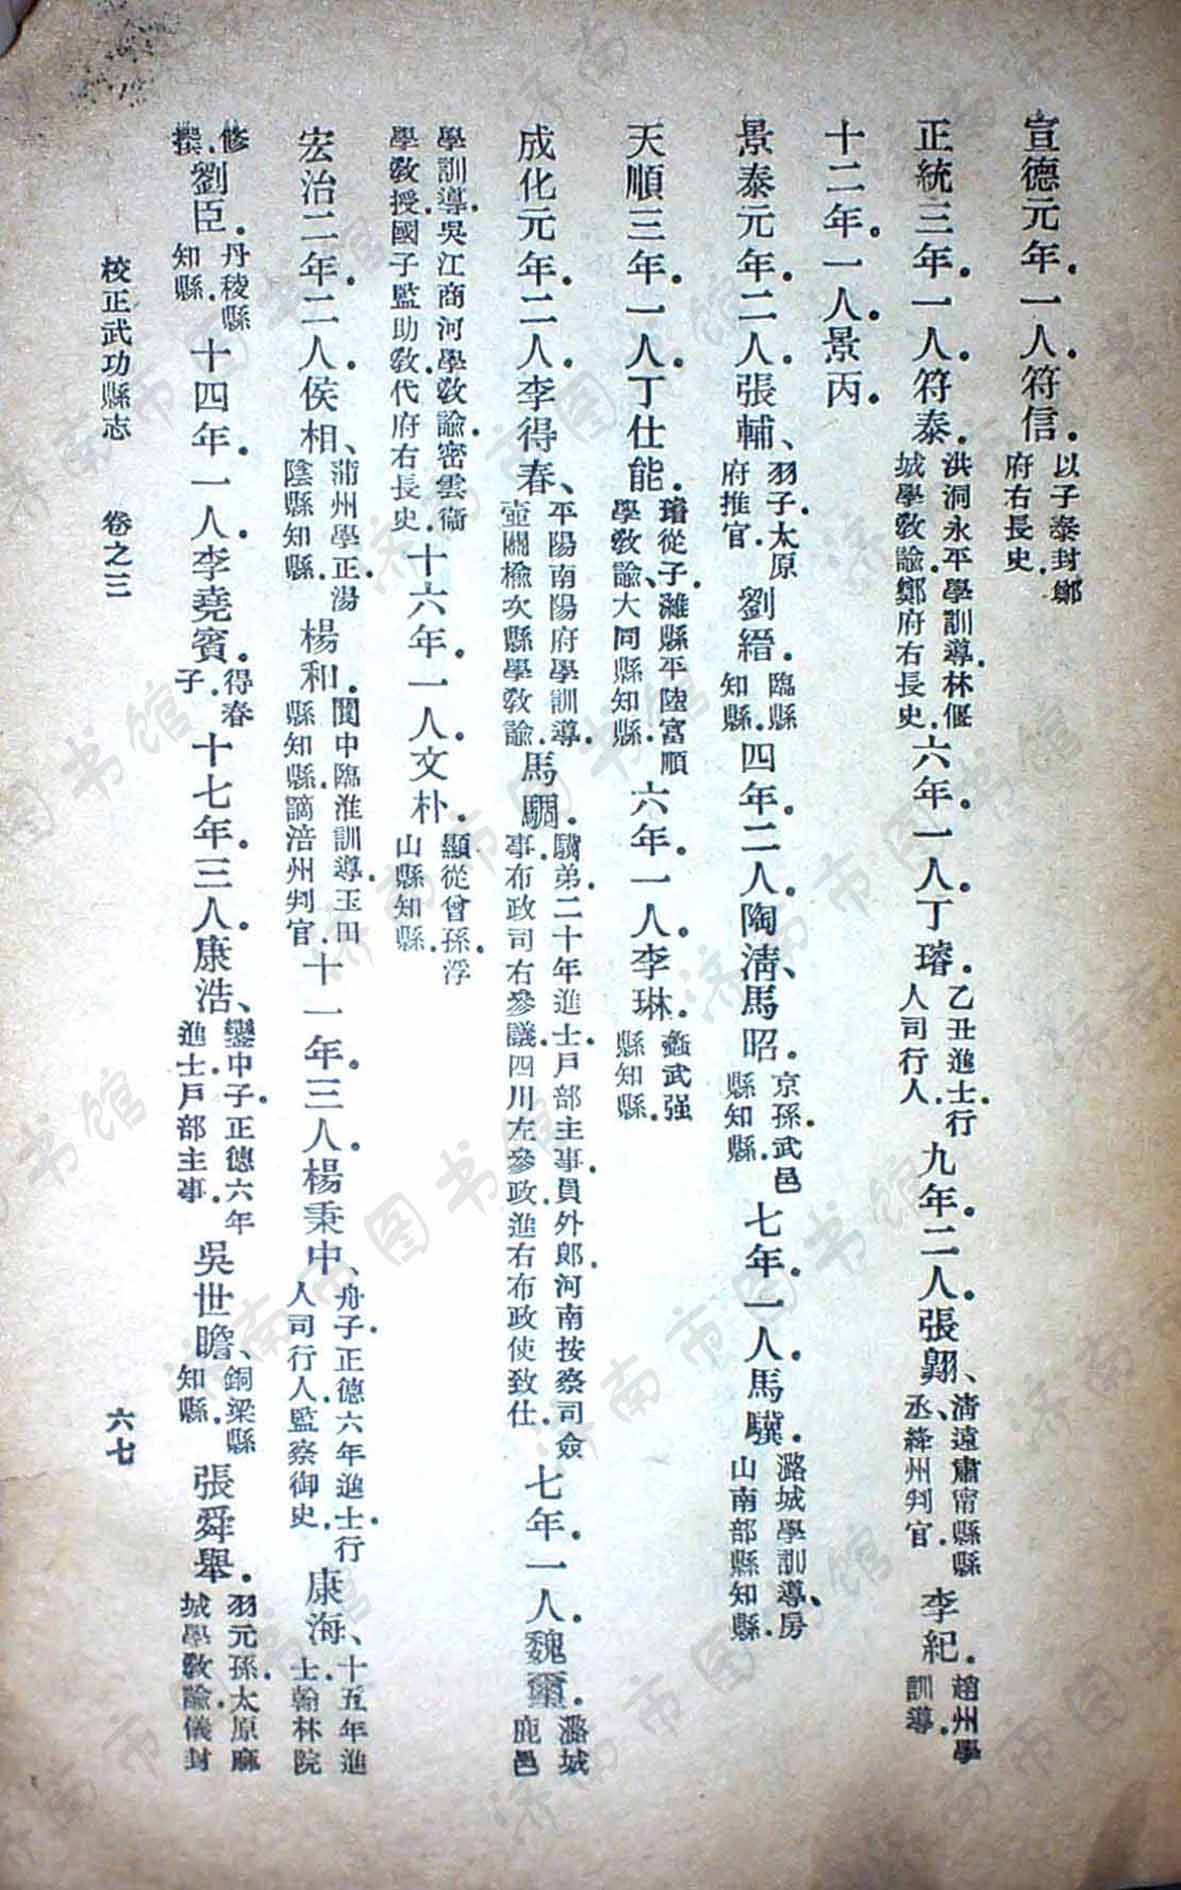 宣德元年。一人。符信。以子泰封鄭府右長史。
正統三年。一人。符泰。洪洞永平學訓導。林偃城學敎諭。鄭府右長史。六年。一人。丁璿。乙丑進士。行人司行人。九年。二人。張翺、淸遠肅甯縣縣丞、絳州判官。李紀。趙州學訓導。
十二年。一人。景丙。
景泰元年。二人。張輔、羽子。太原府推官。劉縉。臨縣知縣。四年。二人。陶淸、馬昭。京孫。武邑縣知縣。七年。一人。馬驥。潞城學訓導、房山南部縣知縣。
天順三年。一人。丁仕能。璿從子。濰縣平陸富順學敎諭、大同縣知縣。六年。一人。李琳。蠡武强縣知縣。
成化元年。二人。李得春、平陽南陽府學訓導。壺關楡次縣學敎諭。馬騆。驥弟。二十年進士。戶部主事。員外郞。河南按察司僉事。布政司右參議。四川左參政。進右布政使致仕。七年。一人。魏璽。潞城鹿邑
學訓導。吳江商河學敎諭。密雲衞學敎授。國子監助敎。代府右長史。十六年。一人。文朴。顯從曾孫。浮山縣知縣。
宏治二年。二人。侯相、蒲州學正。湯陰縣知縣。楊和。閬中臨淮訓導。玉田縣知縣。謫涪州判官。十一年。三人。楊秉中、舟子。正德六年進士。行人司行人。監察御史。康海、十五年進士。翰林院
修撰。劉臣。丹稜縣知縣。十四年。一人。李堯賓。得春子。十七年。三人。康浩、鑾中子。正德六年進士。戶部主事。吳世瞻、銅梁縣知縣。張舜舉。羽元孫。太原麻城學敎諭。儀封
校正武功縣志 卷之三 六七